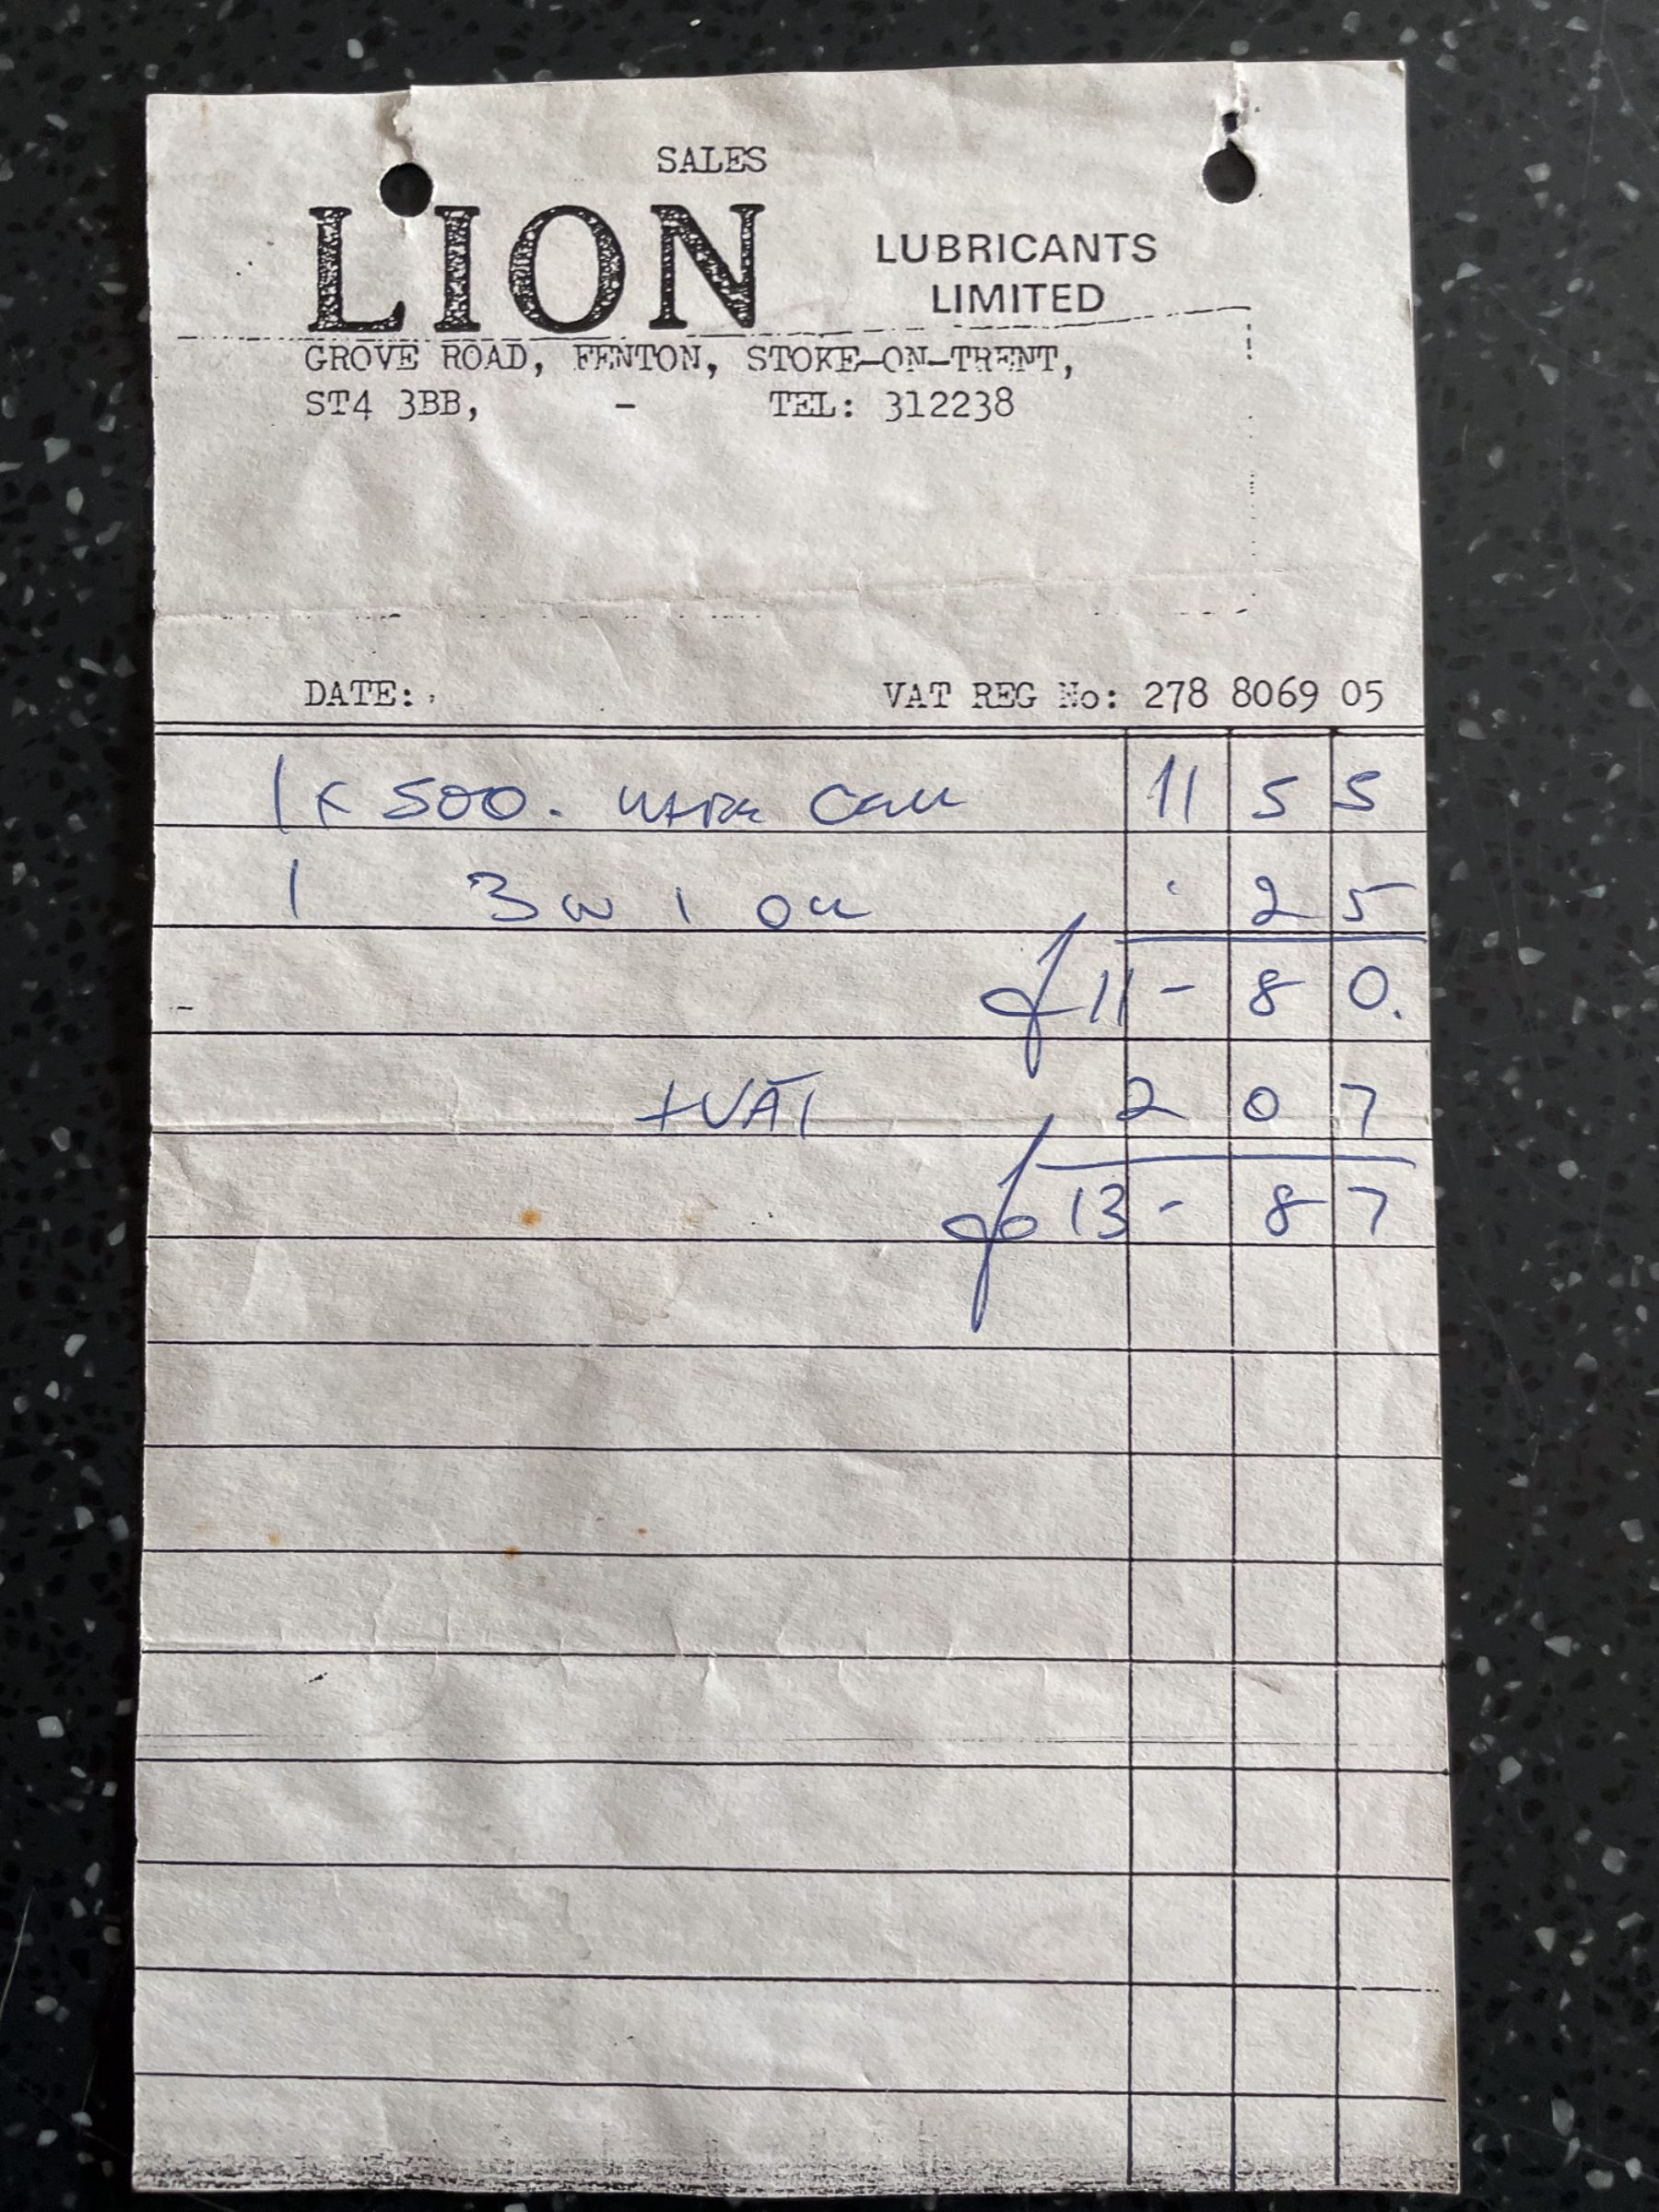 SALES
LION LUBRICANTS
LIMITED
GROVE ROAD, FENTON, STOKE-ON-TRENT,
ST4 3BB, - TEL: 312238
DATE: VAT REG No: 278 8069 05
1 x 500. 11 55
1 3 IN 1 OIL . 25
£11 - 80.
+VAT 2 07
£13 - 87